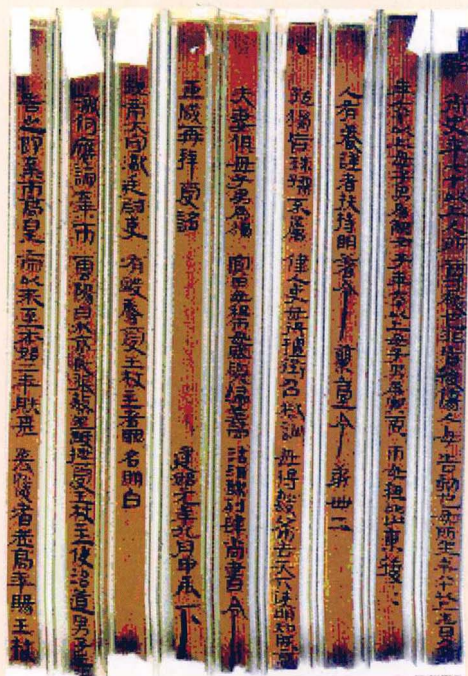 御史年七十以上人所尊敬也非首殺傷人毋告劾也毋所坐年八十以上生日久乎
年六十以上毋子男為鯤女子年六十以上毋子男為寡賈市毋租比山東復復
人有養謹者扶持明著令蘭臺令第卌二
孤獨盲珠孺不屬律人吏毋得擅徵召獄訟毋得毄布告天下使明知朕意
夫妻俱毋子男為獨寡田毋租市毋賦與歸義同沽酒醪列肆尚書令
臣咸再拜受詔 建始元年九月甲辰下
南太守讞廷尉吏有毆辱受王杖主者罪名明白
讞何應論棄市雲陽白水亭長張熬坐毆抴受王杖主使治道男子王湯
告之即棄市高皇帝以來至本始二年朕甚哀憐耆老高年賜王杖